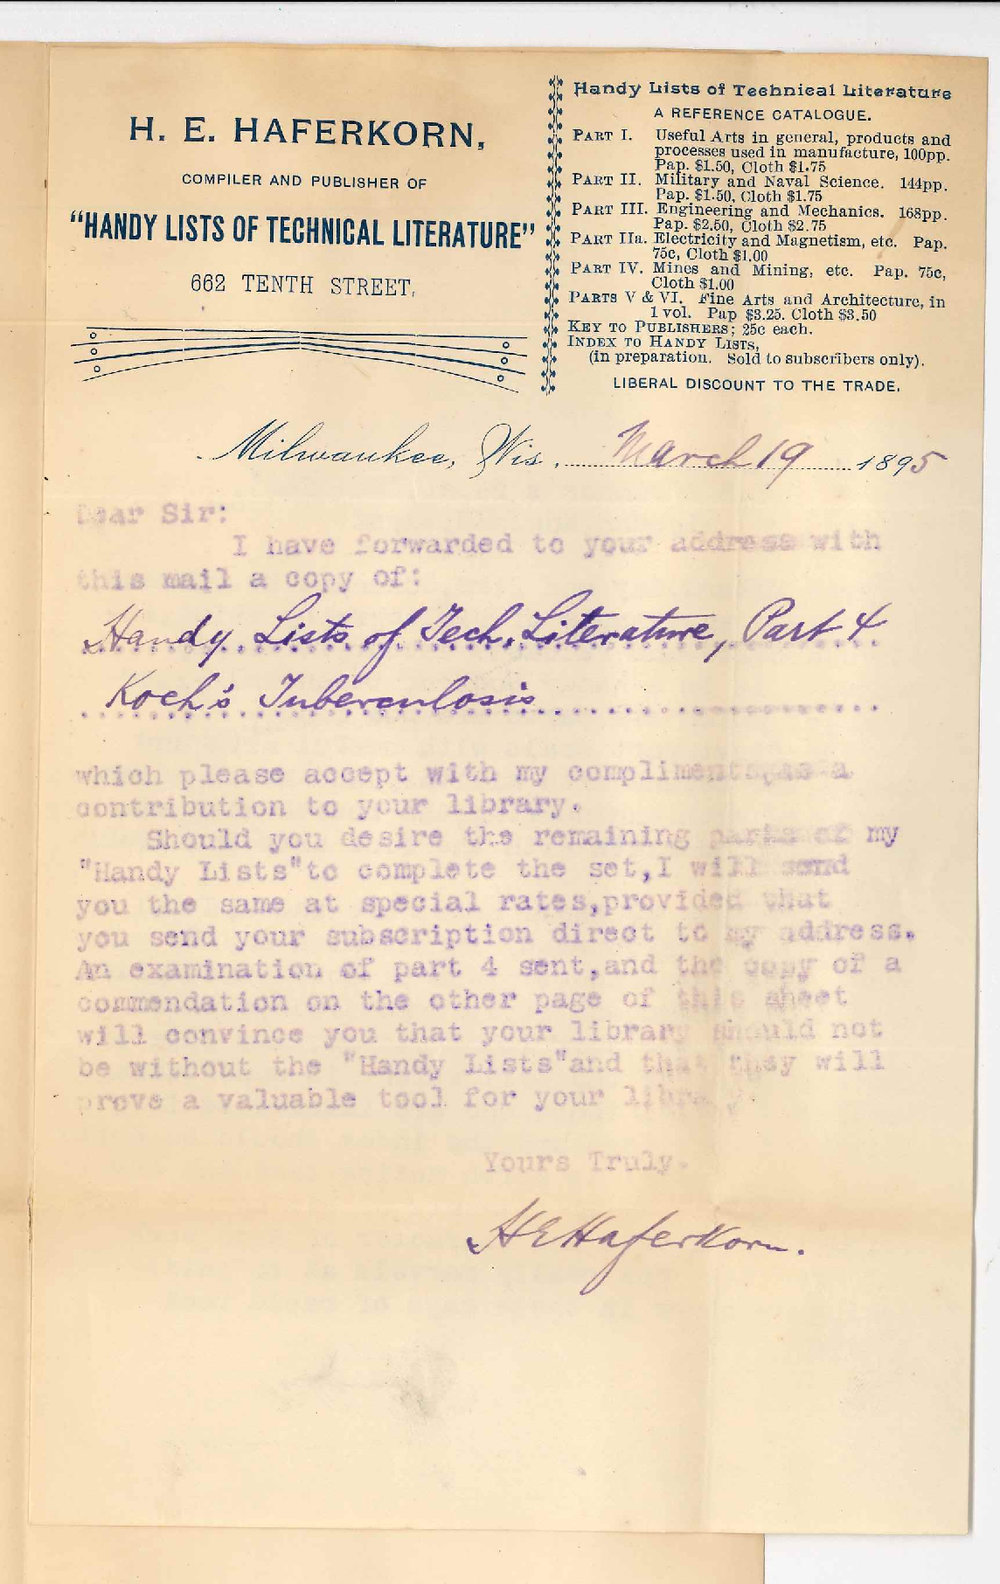 H. E. HAFERKORN,
COMPILER AND PUBLISHER OF
"HANDY LISTS OF TECHNICAL LITERATURE"
662 TENTH STREET,
Handy Lists of Technical Literature
A REFERENCE CATALOGUE.
PART I. Useful Arts in general, products and
processes used in manufacture, 100pp.
Pap. $1.50, Cloth $1.75
PART II. Military and Naval Science. 144pp.
Pap. $1.50, Cloth $1.75
PART III. Engineering and Mechanics. 168pp.
Pap. $2.50, Cloth $2.75
PART IIa. Electricity and Magnetism, etc. Pap.
75c, Cloth $1.00
PART IV. Mines and Mining, etc. Pap. 75c,
Cloth $1.00
PARTS V & VI. Fine Arts and Architecture, in
1 vol. Pap $3.25. Cloth $3.50
KEY TO PUBLISHERS; 25c each.
INDEX TO HANDY LISTS,
(in preparation. Sold to subscribers only).
LIBERAL DISCOUNT TO THE TRADE.
Milwaukee, Wis., March 19 1895
Dear Sir:
I have forwarded to your address with
this mail a copy of:
Handy Lists of Tech. Literature, Part 4
Koch's Tuberculosis
which please accept with my compliments, as a
contribution to your library.
Should you desire the remaining parts of my
"Handy Lists"to complete the set,I will send
you the same at special rates,provided that
you send your subscription direct to my address.
An examination of part 4 sent,and the copy of a
commendation on the other page of this sheet
will convince you that your library should not
be without the "Handy Lists"and that they will
prove a valuable tool for your library.
Yours Truly.
H E Haferkorn.